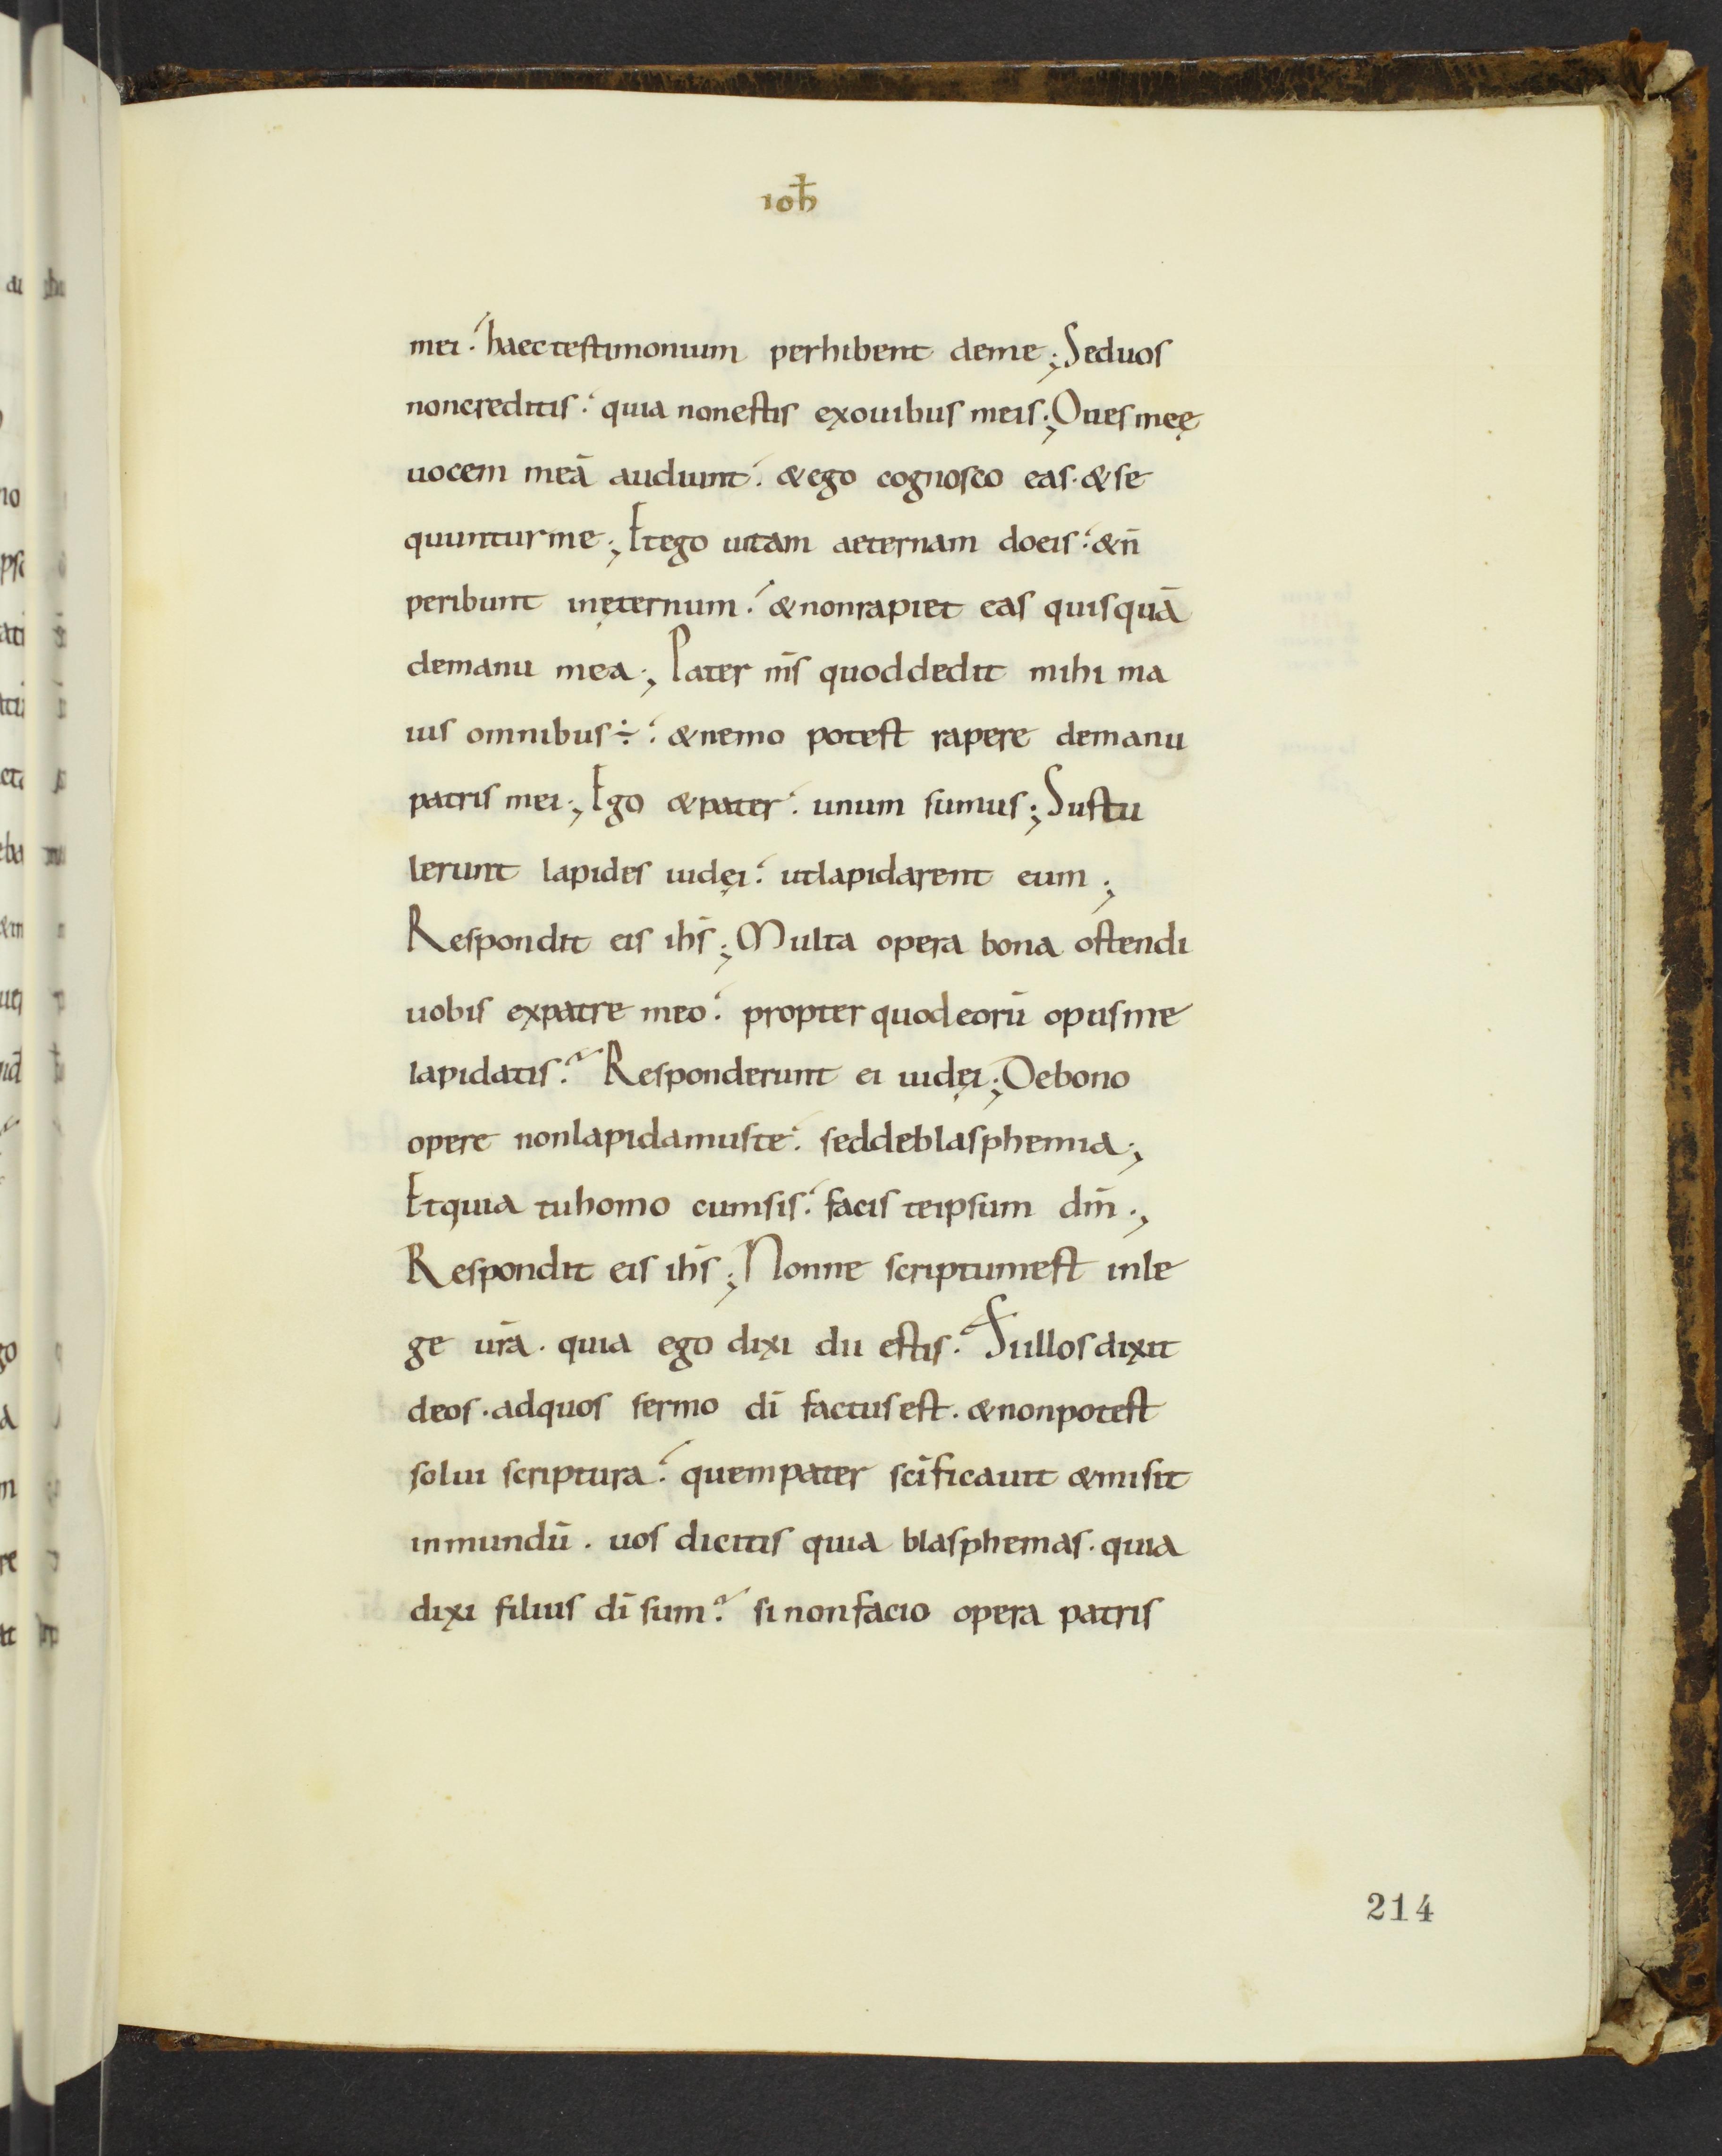 ioħ
mei. haec testimonium perhibent deme; Seduos
noncreditis. quia nonestis exouibus meis; Oues meę
uocem meā audiunt. &ego cognosco eas. &se
quunturme; Etego uitam aeternam doeis. &n̄
peribunt inęternum. &nonrapiet eas quisquā
demanu mea; Pater m̄s quoddedit mihi ma
ius omnibus ÷. &nemo potest rapere demanu
patris mei; Ego &pater. unum sumus; Sustu
lerunt lapides iudęi. utlapidarent eum;
Respondit eis ih̄s; Multa opera bona ostendi
uobis expatre meo. propter quodeorū opusme
lapidatis? Responderunt ei iudęi; Debono
opere nonlapidamuste. seddeblasphemia;
Etquia tuhomo cumsis. facis teipsum dm̄;
Respondit eis ih̄s; Nonne scriptumest inle
ge ur̄a. quia ego dixi dii estis? Siillosdixit
deos. adquos sermo dī factusest. &nonpotest
solui scriptura. quempater sc̄ificauit &misit
inmundū. uos dicitis quia blasphemas. quia
dixi filius dī sum? si nonfacio opera patris
214